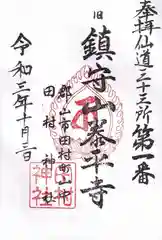 奉拝仙道三十三所第一番
旧
鎮守山泰平寺
郡山市田村町山中
田村神社
令和三年十月三日